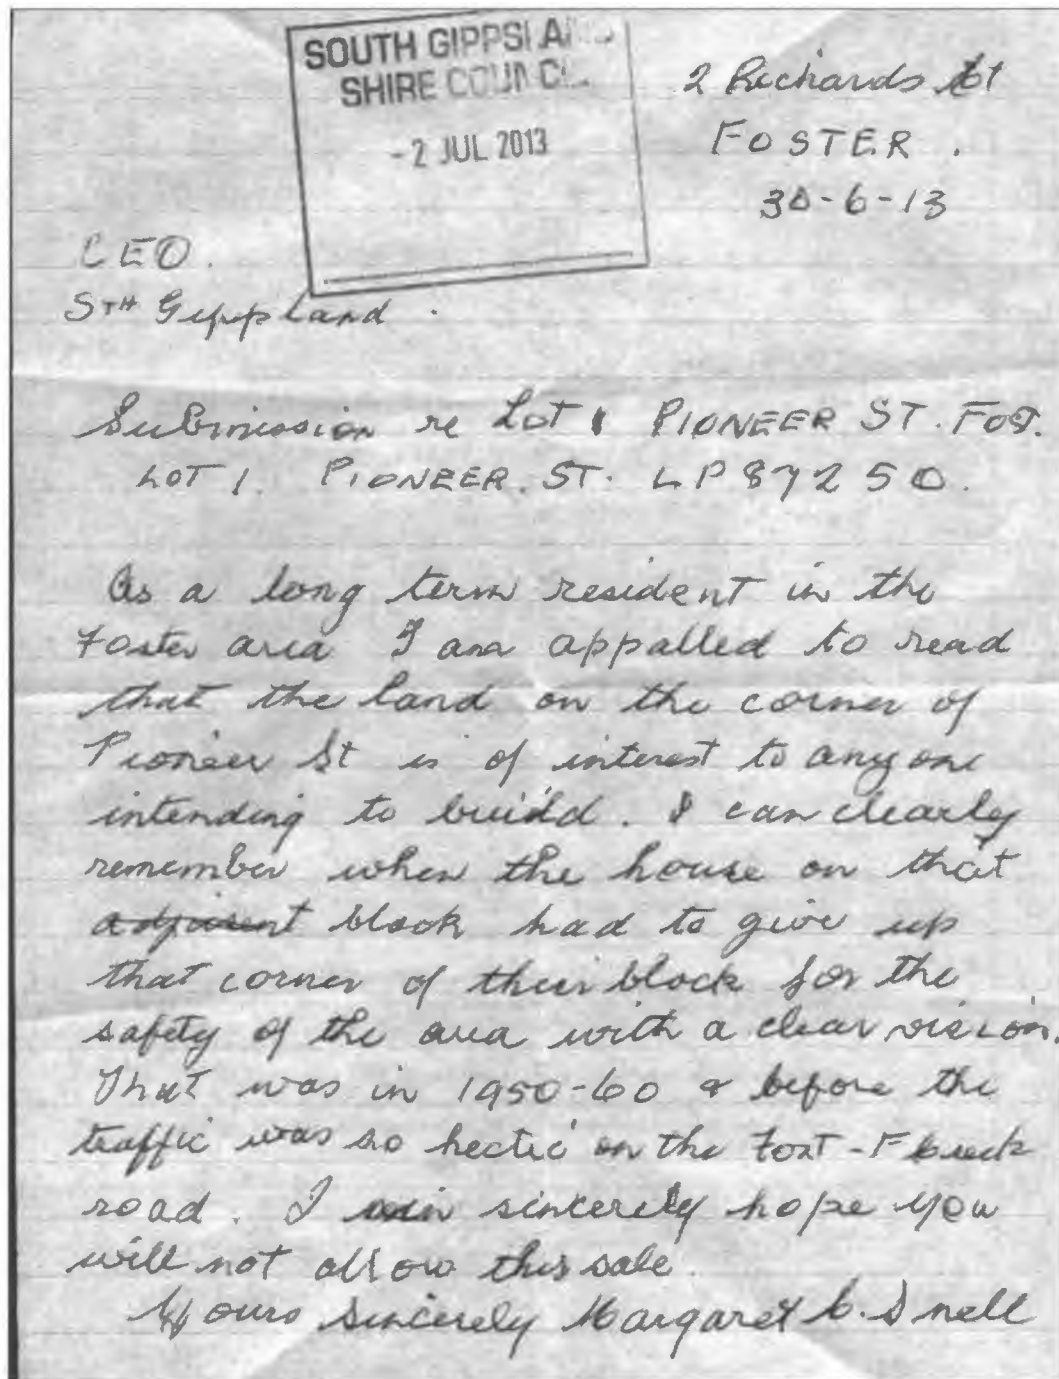 SOUTH GIPPSLAND
SHIRE COUNCIL
- 2 JUL 2013
2 Richards St
FOSTER.
30-6-13
CEO.
STH Gippland.
Submission re Lot 1 PIONEER ST. FOST.
LOT 1. PIONEER. ST. LP 87250.
As a long term resident in the
Foster area I am appalled to read
that the land on the corner of
Pioneer St is of interest to anyone
intending to build. I can clearly
remember when the house on that
adjacent block had to give up
that corner of their block for the
safety of the area with a clear vision.
That was in 1950-60 & before the
traffic was so hectic on the Fost-F Creek
road. I sincerely hope you
will not allow this sale.
Yours Sincerely Margaret C. Snell